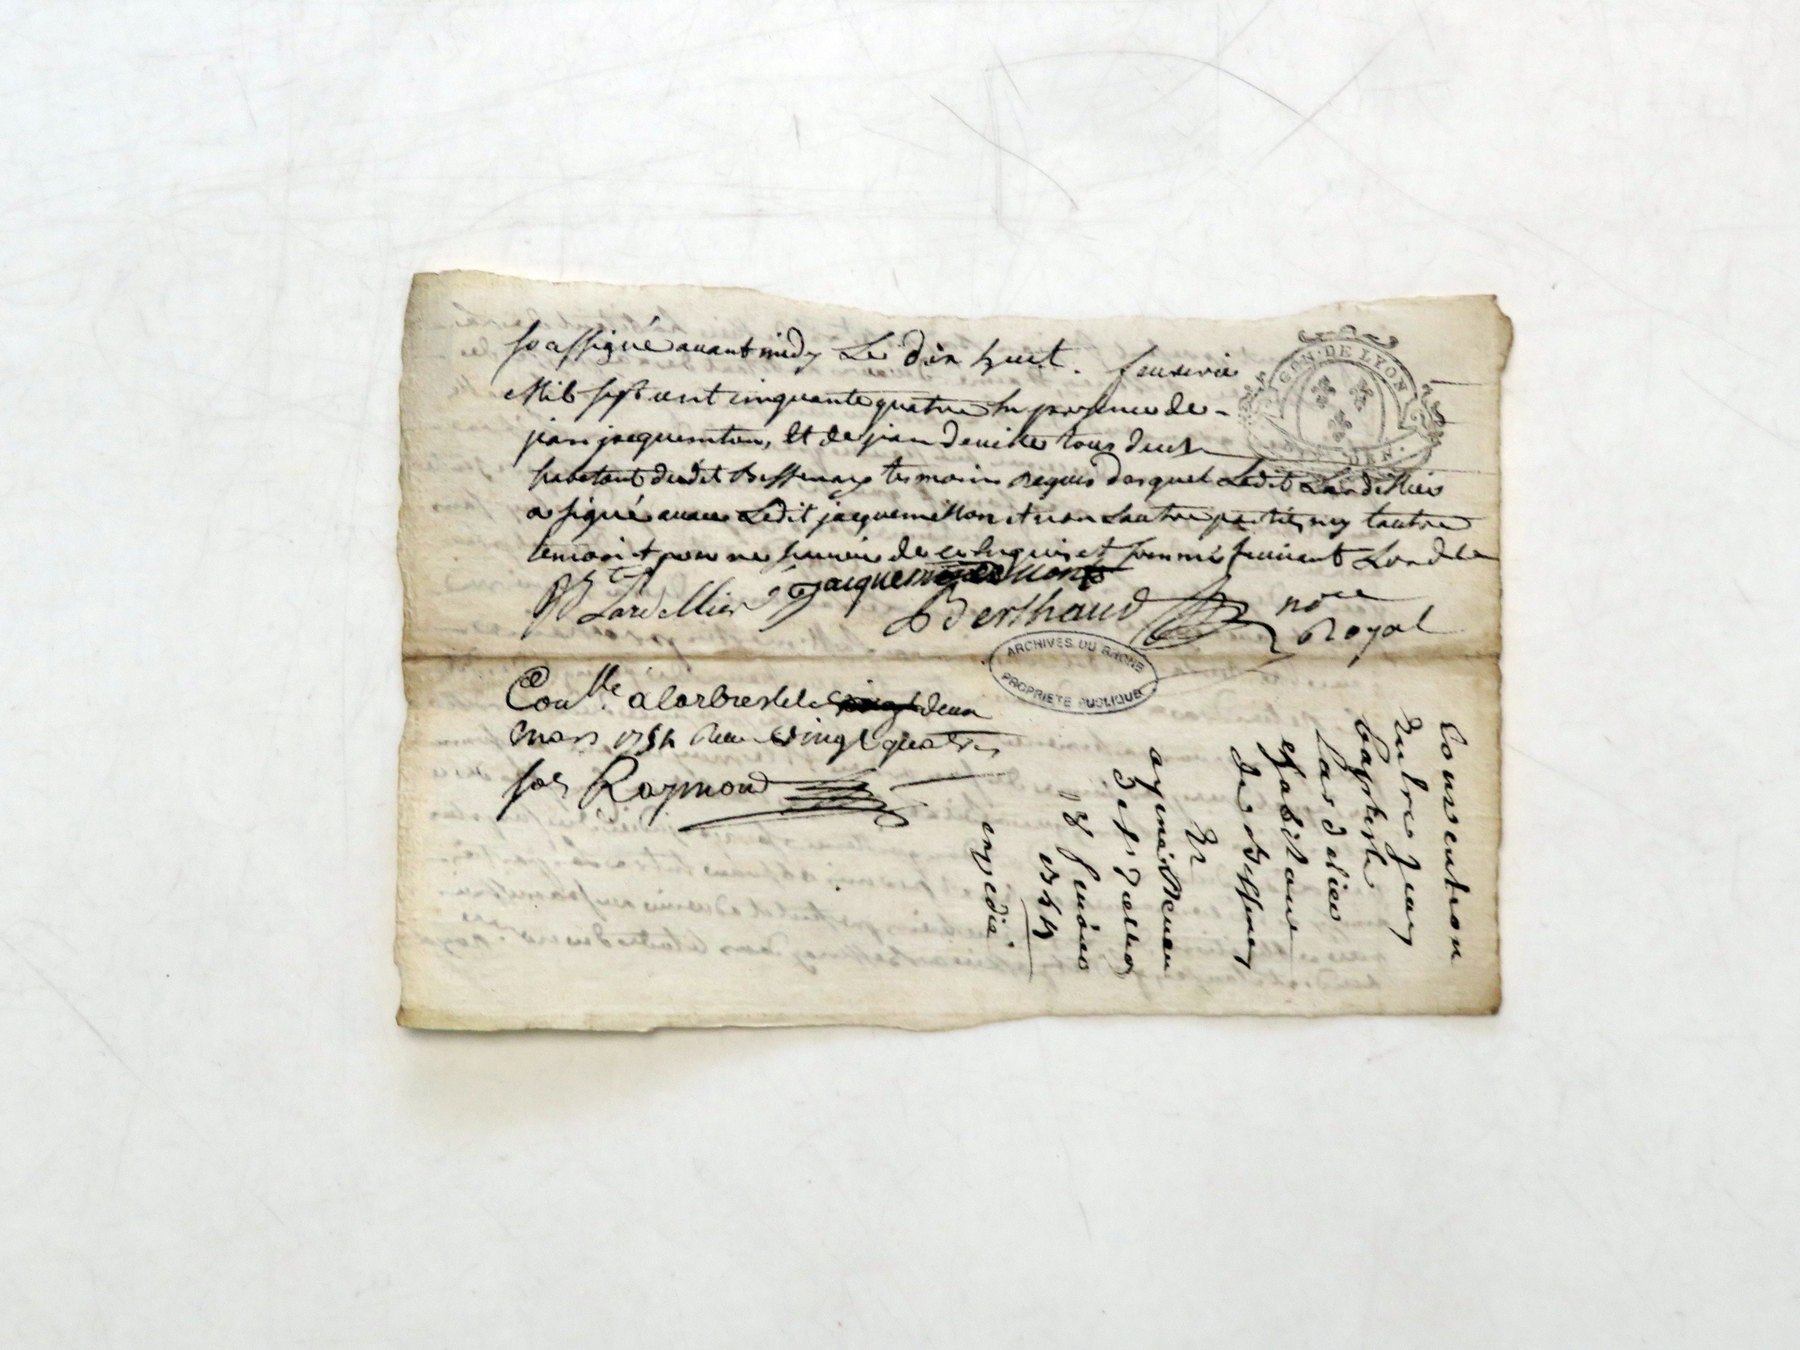 avant midy Le dix huit. feuvrié
Mil sept cent cinquante quatre En presence de
jean jacquemeton, Et de jean tous deux
habitant dudit Bessenay temoins requis desquel Ledit Lardellier
a signé avec Ledit jacquemetton et non Lautre partie, ny Lautre
temoin pour ne scavoir de ce Enquis et sommé suivant Lord.ce
Lardellier Jacquemetton
Berthaud no.re
Royal
GEN. DE LYON
DEN.
ARCHIVES DU RHONE
PROPRIETE PUBLIQUE
Con.lle a Larbresle le deux
mars 1754 Reçu vingt quatre
sols Raymond
Convention
Entre jean
baptiste
Lardelier
habitant
de Bessenay
Et
aymé
18 fevrier
1754
expedié